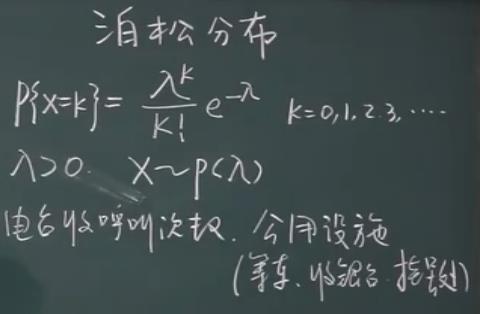 泊松分布
P{X=k}= λ^k/k! e^-λ k=0,1,2.3,····
λ>0. X~P(λ)
电台收呼叫次数. 公用设施
(等车、收银台.挂号处)